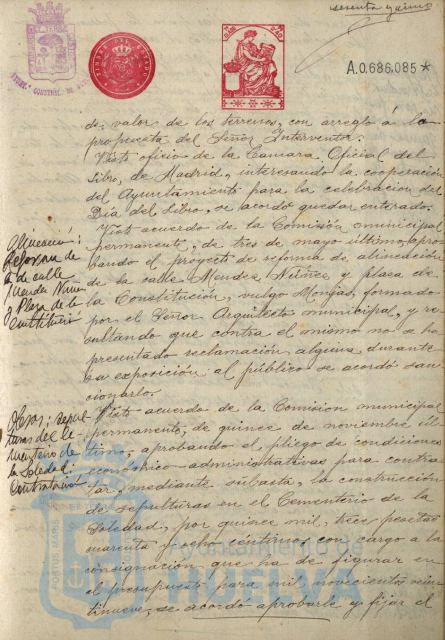 sesenta y uno
A.0.686.085*
de valor de los terrenos, con arreglo á la
propuesta del Señor Interventor.
Visto oficio de la Camara Oficial del
Libro, de Madrid, interesando la cooperación
del Ayuntamiento para la celebracion del
Dia del Libro, se acordó quedar enterado.
Alineación:
Reforma de
de calle
Mendez Nuñez
y Plaza de la
Constitució
Visto acuerdo de la Comisión municipal
permanente, de tres de mayo último, apro-
bando el proyecto de reforma de alineación
de la calle Mendez Núñez y plaza de
la Constitución, vulgo Monjas, formado
por el Señor Arquitecto municipal, y re
sultando que contra el mismo no se ha
presentado reclamación alguna durante
su exposición al público se acordó san
cionarlo.
Obras: sepul
turas del Ce
menterio de
la Soledad:
Contratación
Visto acuerdo de la Comision municipal
permanente, de quince de noviembre úl
timo, aprobando el pliego de condiciones
económico-administrativas para contra
tar, mediante subasta, la construcción
de sepulturas en el Cementerio de la
Soledad, por quince mil, trece pesetas
cuarenta y ocho céntimos, con cargo a la
consignación que ha de figurar en
el presupuesto para mil novecientos vein
tinueve, se acordó aprobarle y fijar el
Ayuntamiento de
HUELVA